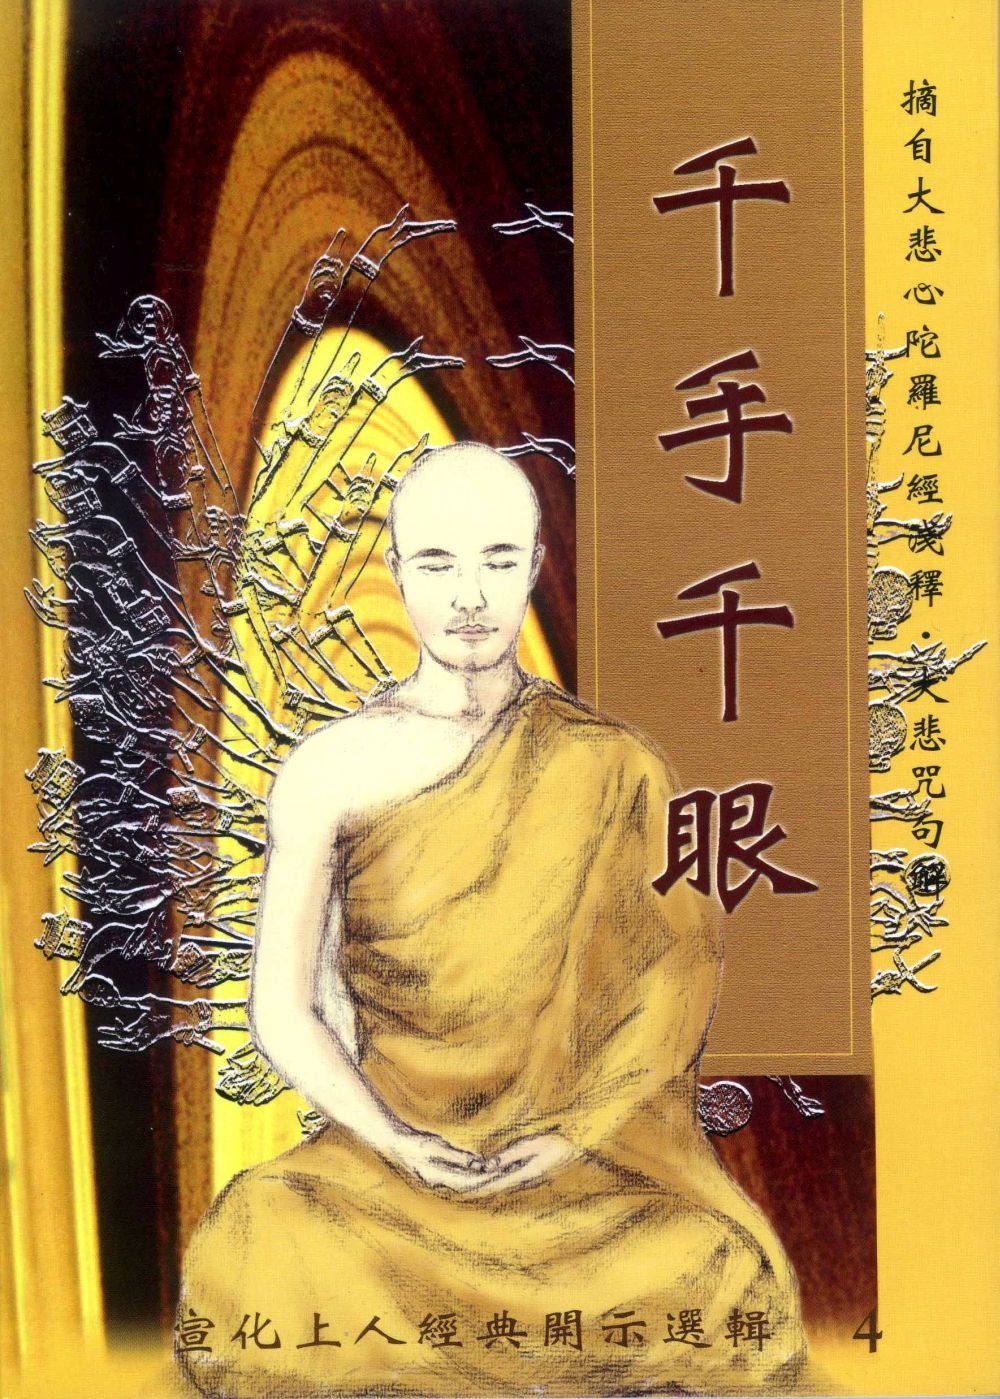 摘自大悲心陀羅尼經淺釋．大悲咒句解
千手千眼
宣化上人經典開示選輯 4